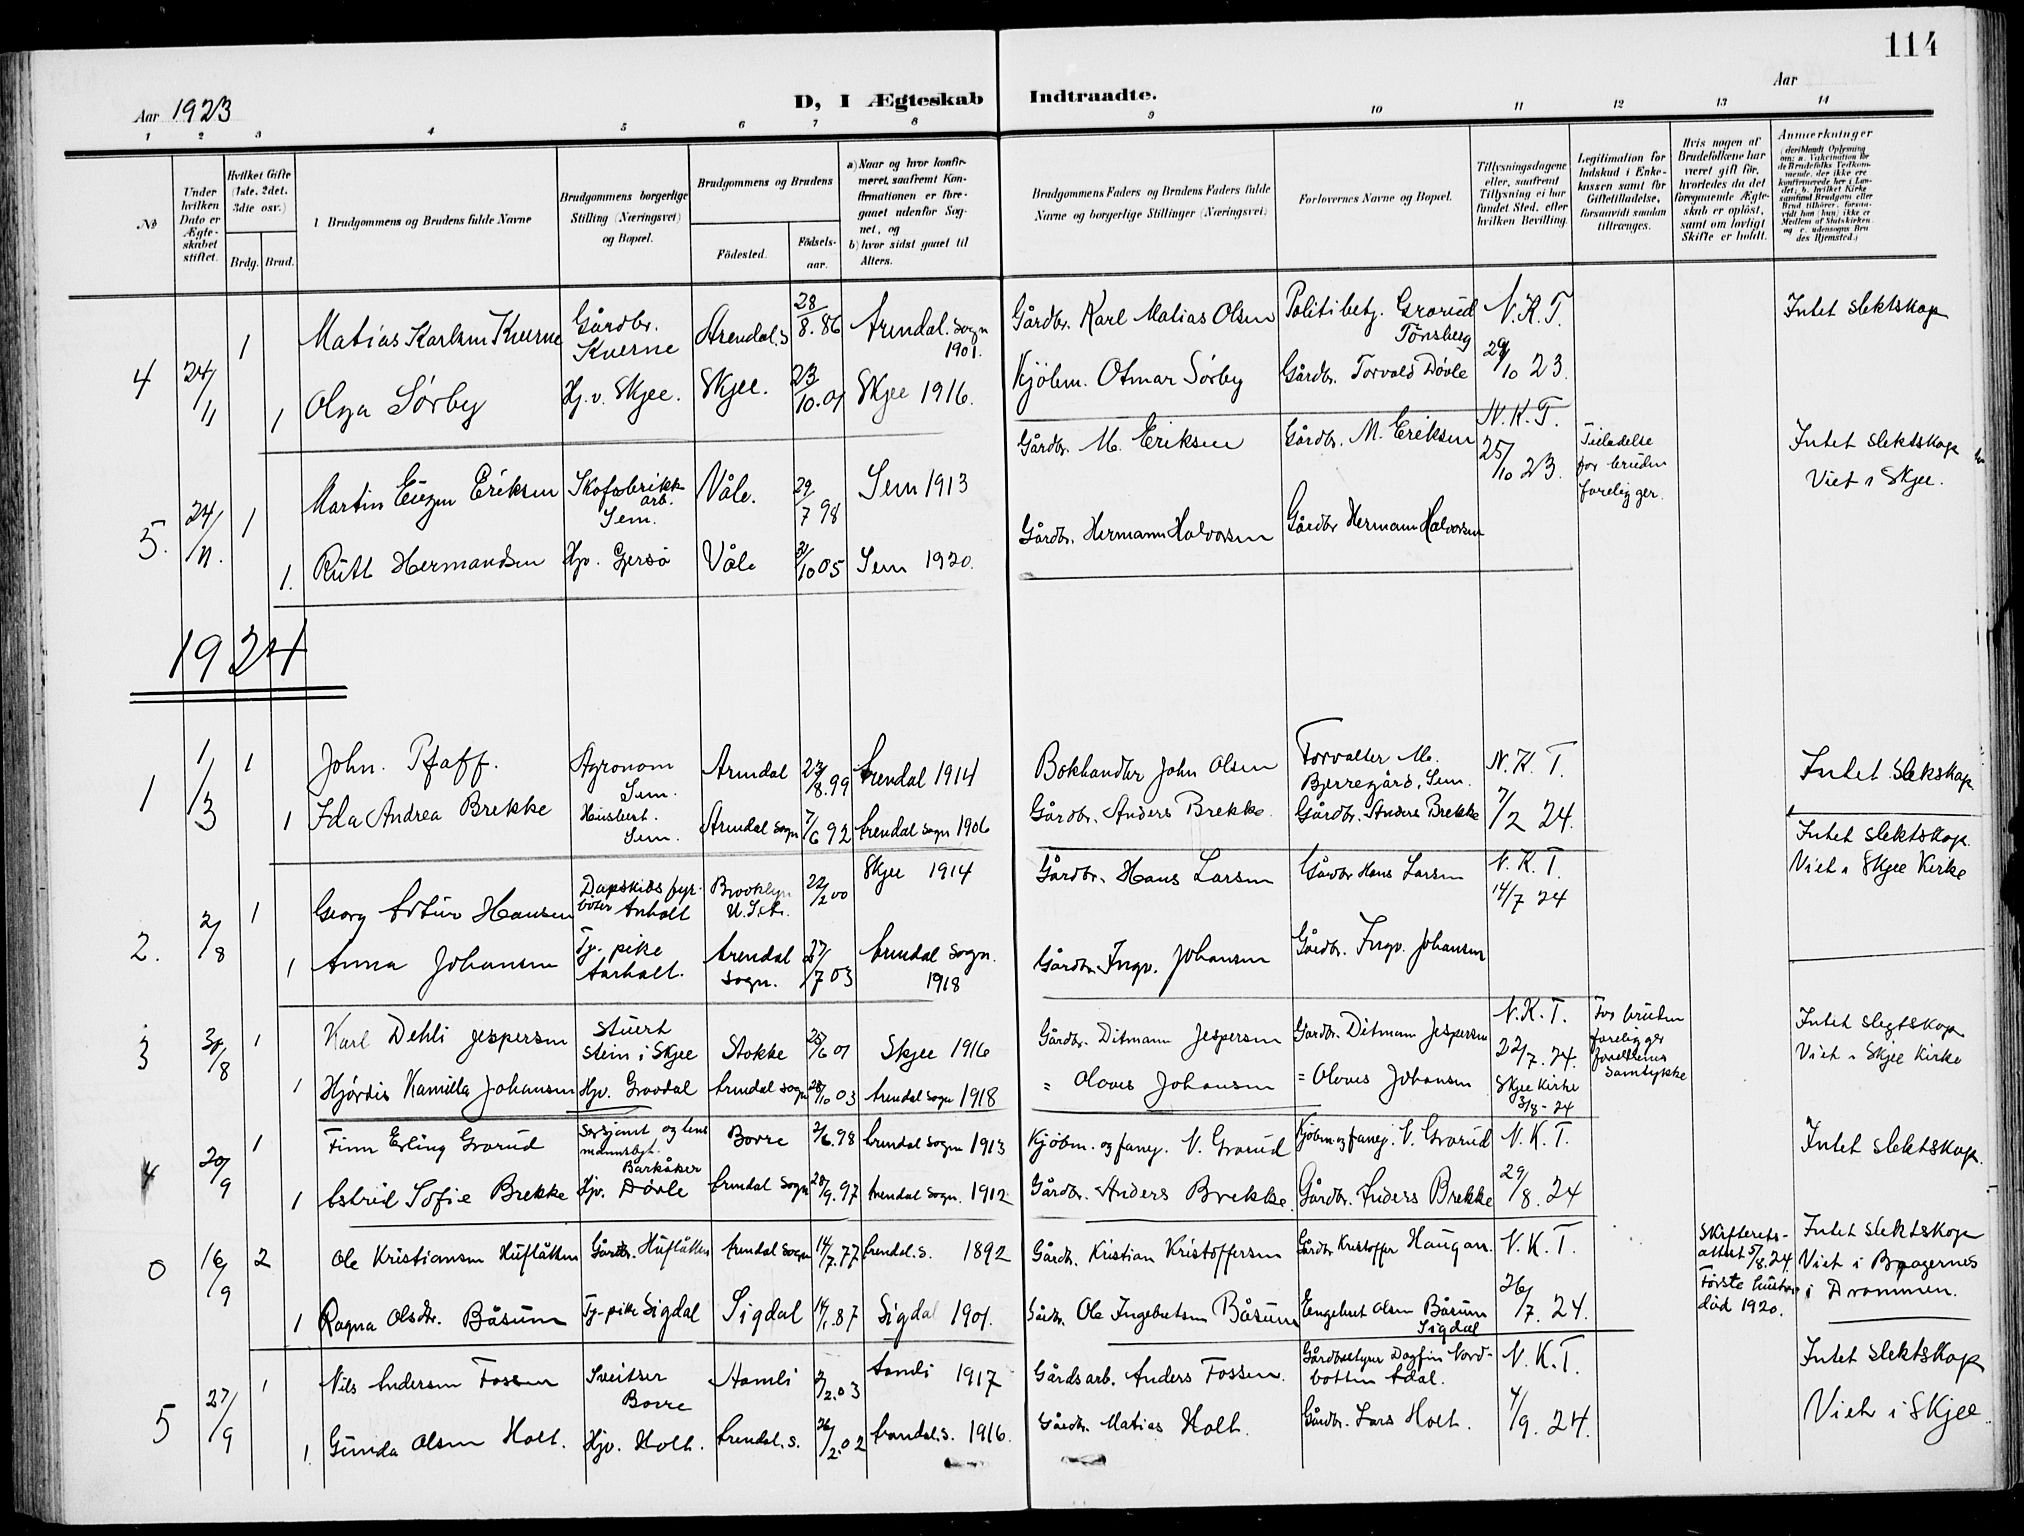 114
Aar 1923
D, I Ægteskab Indtraadte.
Aar
1 2 3 4 5 6 7 8 9 10 11 12 13 14
No
Under hvilken Dato er Ægteskabet stiftet.
Hvilket Gifte (1ste. 2det. 3die osv.)
Brdg. Brud.
Brudgommens og Brudens fulde Navne
Brudgommens borgerlige Stilling (Næringsvei) og Bopæl.
Brudgommens og Brudens
Fødested.
Fødselsaar.
a) Naar og hvor konfirmeret, saafremt Konfirmationen er foregaaet udenfor Sognet, og
b) hvor sidst gaaet til Alters.
Brudgommens Faders og Brudens Faders fulde Navne og borgerlige Stillinger (Næringsvei)
Forlovernes Navne og Bopæl.
Tillysningsdagene eller, saafremt Tillysning ei har fundet Sted, efter hvilken Bevilling
Legitimation for Indskud i Enkekassen samt for Giftetilladelse, forsaavidt saadan tiltrænges.
Hvis nogen af Brudefolkene har været gift før, hvorledes da det foregaaende Ægteskab er opløst, samt om lovligt Skifte er holdt.
Anmerkninger
4 24/11 1 Matias Karlsen Kverne Gårdbr. Kverne Arendal.s 28/8.86 Arendal. sogn 1901. Gårdbr. Karl Matias Olsen Politibetj. Grorud Tønsberg N.K.T. 29/10 23. Intet slektskap
1 Olga Sørby Hj. v. Skjee. Skjee. 23/10.01 Skjee 1916. Kjöbm. Otmar Sørby Gårdbr. Torvald Døvle
5. 24/11. 1 Martin Eugen Eriksen Skofabrikk arb. Sem. Våle. 29/7 98 Sem 1913 Gårdbr. M. Eriksen Gårdbr. M. Eriksen N.K.T. 25/10 23. Tilladelse for bruden foreligger. Intet slektskap Viet i Skjee.
1. Rutt Hermandsen Hjv. Gjersø Våle 31/10 05 Sem 1920. Gårdbr. Hermann Halvorsen Gårdbr Hermann Halvorsen
1924
1 1/3 1 John. Pfaff. Agronom Sem. Arendal 23/8.99 Arendal 1914 Bokhandler John Olsen Forvalter M. Bjerregård, Sem. N.K.T. 7/2 24. Intet slekskap
1 Ida Andrea Brekke Husbest. Sem. Arendal sogn 7/6 92 Arendal sogn 1906 Gårdbr. Anders Brekke. Gårdbr. Anders Brekke
2. 2/8 1 Georg Artur Hansen Dapskibs fyrböter Anholt Brooklyn U.S.A. 22/2 00 Skjee 1914 Gårdbr. Hans Larsen Gårdbr Hans Larsen N.K.T. 14/7 24 Intet slektskap. Viet i Skjee Kirke
1 Anna Johansen Tj-pike Aarholt. Arendal sogn. 27/7 03 Arendal sogn. 1918 Gårdbr. Ingv. Johansen Gårdbr. Ingv. Johansen
3 31/8 1 Karl Dehli Jespersen Stuert Stein i Skjee Stokke 25/6 01 Skjee 1916 Gårdbr. Ditmann Jespersen Gårdbr. Ditmann Jespersen N.K.T. 22/7. 24. Skjee Kirke 31/8-24 For bruden foreligger foreldrenes samtykke Intet slegtskap Viet i Skjee Kirke
1 Hjørdis Kamilla Johansen Hjv. Grovdal Arendal sogn 28/10 03 Arendal sogn 1918 = Olaves Johansen = Olaves Johansen
4 20/9 1 Finn Erling Grorud Sersjant og lensmannsbgt. Barkåker Borre 2/6.98 Arendal sogn 1913 Kjöbm. og fanej. N. Grorud Kjöbm og fanej. N. Grorud N.K.T. 29/8. 24 Intet slektskap.
1 Astrid Sofie Brekke Hjv. Døvle Arendal sogn 28/9.97 Arendal sogn. 1912 Gårdbr. Anders Brekke. Gårdbr. Anders Brekke
0 16/9 2 Ole Kristiansen Huflåtten Gårdbr. Huflåtten Arendal sogn 14/7.77 Arendal.s. 1892 Gårdbr. Kristian Kristoffersen Gårdbr Kristoffer Haugan. N.K.T. 26/7. 24. Skifterets-attest 5/8.24. Første hustru død 1920. Intet slektskap Viet i Bragernes i Drammen.
1 Ragna Olsdtr. Båsum Tj-pike Sigdal Sigdal 14/1.87 Sigdal 1901. Gårdbr. Ole Ingebretsen Båsum Engebret Olsen Båsum Sigdal
5 27/9 1 Nils Andersen Fossen Sveitser Borre Hamli 2/2.03 Aamli 1917 Gårdsarb. Anders Fossen. Gårdbestyrer Dagfin Nordbotten Ådal. N.K.T. 4/9. 24. Intet slektskap Viet i Skjee.
1. Gunda Olsen Holt. Hjv. Holt. Arendal.s. 26/2.02 Arendal.s. 1916. Gårdbr. Matias Holt. Gårdbr. Lars Holt.